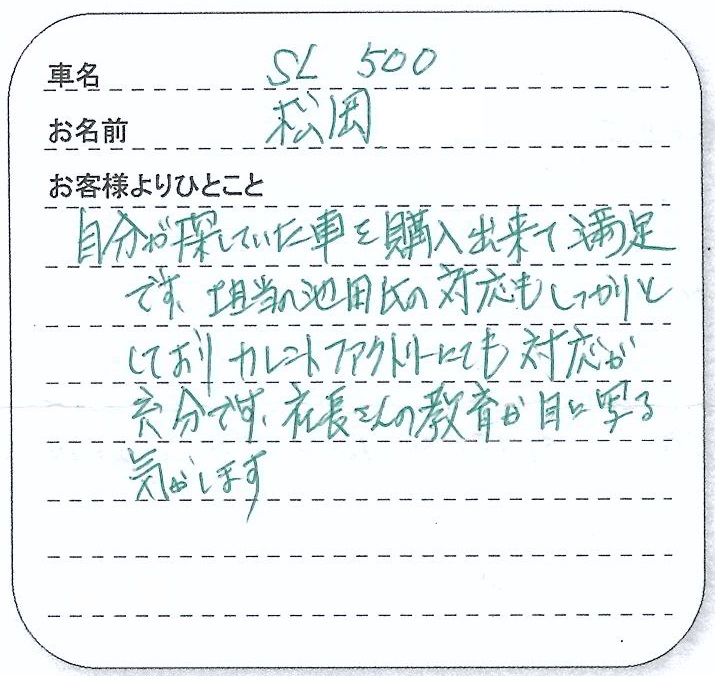 車名 SL 500
お名前 松岡
お客様よりひとこと
自分が探していた車を購入出来て満足
です、担当の池田氏の対応もしっかりと
しており カレントファクトリーにても対応が
充分です、社長さんの教育が目に写る
気がします